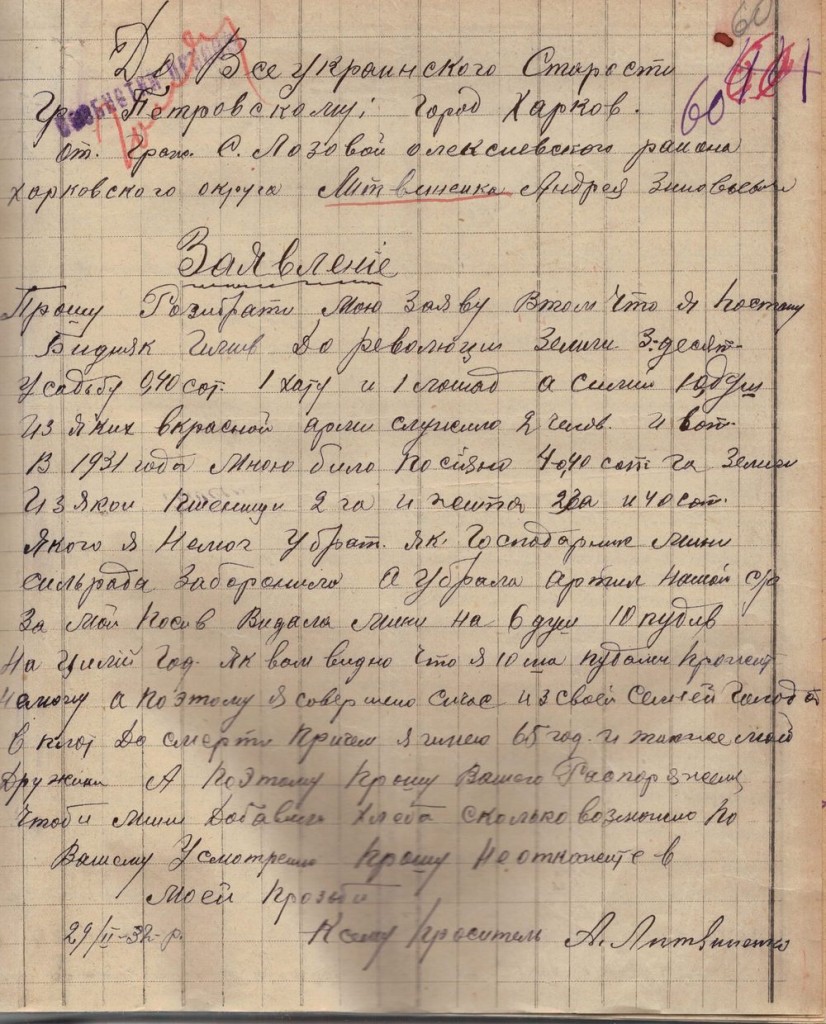 До Всеукраинского Старости
Гр. Петровскому; город Харков.
от. Граж. С. Лозовой олексиевского района
харковского округа Литвиненка Андрея Зиновьеви
Заявленіе
Прошу Розибрати Мою Заяву Втом Что я
Бидняк Имив До революции Земли 3-десят.
Усадьбу 0,40 сот. 1 хату и 1 лошад а симии 10 душ
Из яких вкрасной арми служило 2 челов. и вот.
В 1931 года Мною било посіяно 4040 сот. га Земли
Из якои пшеници 2 га и жита 2 га и 40 сот.
якого я Немог Убрат. як Господарник Мини
сильрада Заборонила А Убрала артил Нашой с/р
За Мой посив Видала Мини на 6 душ 10 пудив
На Цилий Год. Як вам видно Что я 10 ша пудами прожит
Немогу а поэтому я совершено Сичас из своей Семіей
До смерти причем я имею 65 год. и
Дружини А поэтому прошу Вашого Распоряжения
Чтоби Мини Добавили хлеба сколько возможно по
Вашему Усмотрению прошу Неоткажите в
Моей прозьби
29/II-32 р. К сему проситель А. Литвиненко
60
60